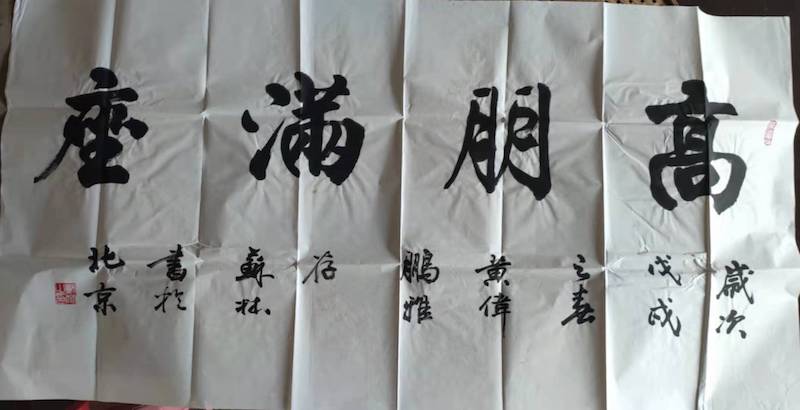 高朋滿座
歲次
戊戌
之春
黃偉
鵬雅
存
蘇林
書於
北京